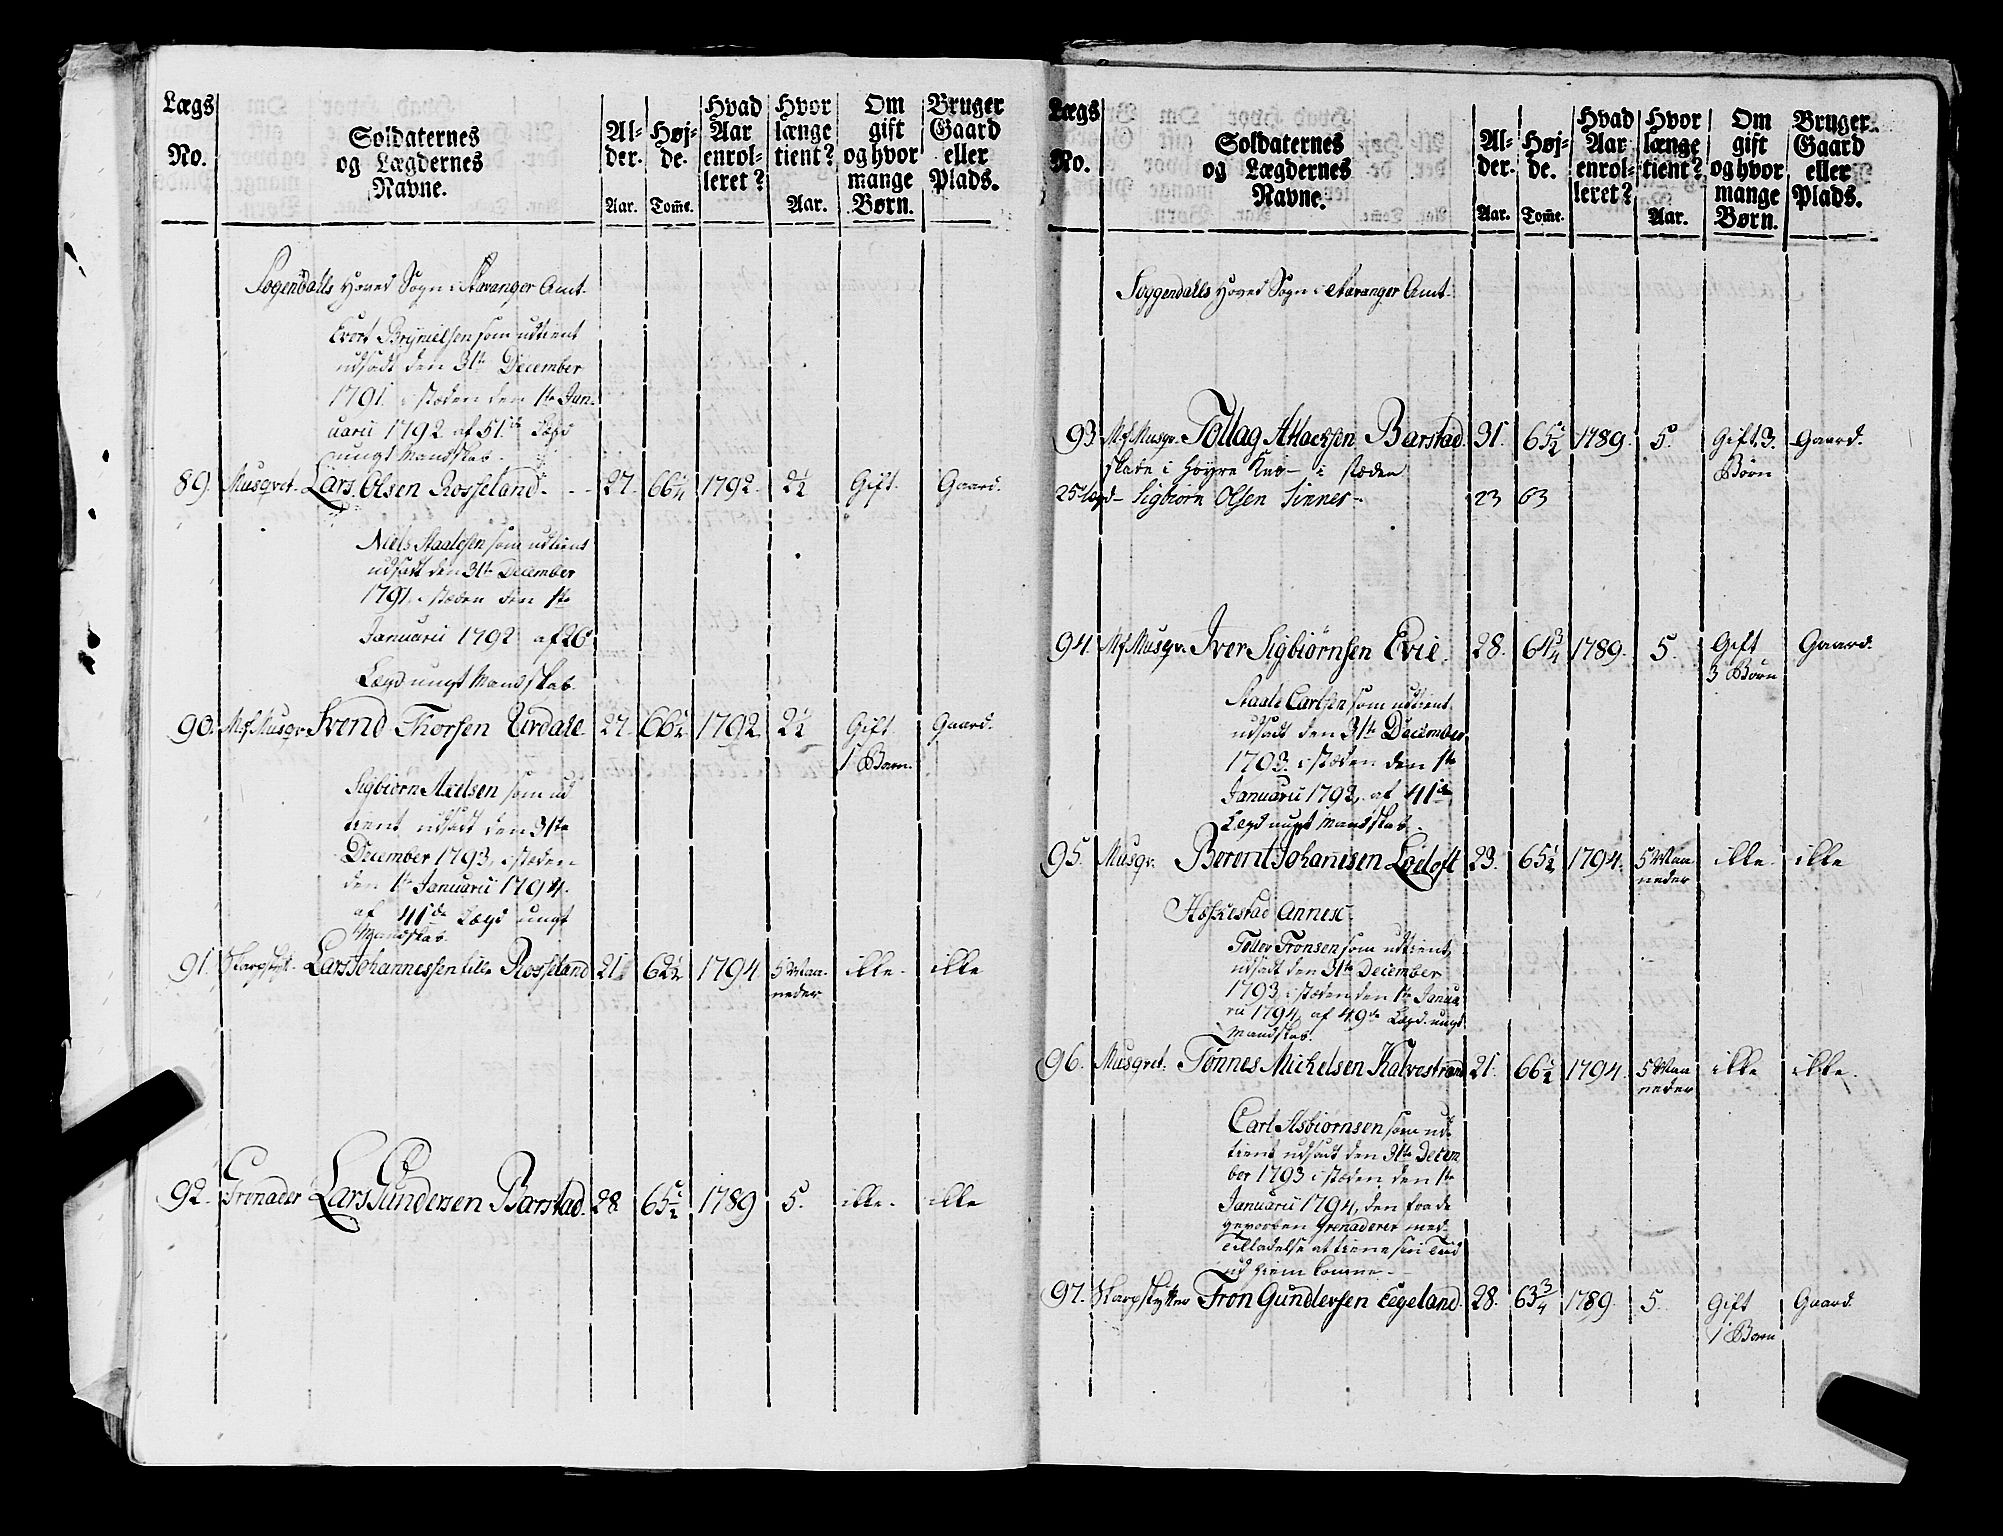 Lægs No. Soldaternes og Lægdernes Navne. Al-der. Aar. Høj-de. Tome. Hvad Aar enrol-leret? Hvor længe tient? Aar. Om gift og hvor mange Børn. Bruger Gaard eller Plads.
Sogendalls Hoved Sogn i Stavanger Amt.
Evert Brynielsen som udtient
udsadt den 31te December
1791. i stæden den 1te Jan-
uarii 1792 af 51de Lægd
ungt Mandskab.
89. Musqvet. Lars Olsen Rosseland. 27. 66 1/4 1792. 2 1/2 Gift. Gaard.
Niels Staalesen som udtient
udsadt den 31te December
1791. i stæden den 1te
Januarii 1792 af 26
Lægd ungt Mandskab.
90. Mf. Musqr. Svend Thorsen Urdale 27. 66 1/2 1792. 2 1/2 Gift Gaard.
1 Barn.
Sigbiørn Nielsen som ud
tient udsadt den 31te
December 1793, i stæden
den 1te Januarii 1794.
af 41de Lægd ungt
Mandskab.
91. Skarpsk. Lars Johannessen lille Rosseland 21 62 1/2 1794 5 Maa- ikke. ikke
neder
92. Grenader Lars Gundersen Barstad. 28 65 1/2 1789 5. ikke. ikke
Lægs No. Soldaternes og Lægdernes Navne. Al-der. Aar. Høj-de. Tome. Hvad Aar enrol-leret? Hvor længe tient? Aar. Om gift og hvor mange Børn. Bruger Gaard eller Plads.
Soggendalls Hoved Sogn i Stavanger Amt.
93 Mf. Musqr. Tollag Atlachsen Barstad. 31. 65 1/2 1789. 5. Gift. 3. Gaard.
skade i høyre Knæ i stæden Børn
25 Lægd Sigbiørn Olsen Sinnes 23 63
94. Mf. Musqr. Iver Sigbiørnsen Evie. 28. 64 3/4 1789. 5. Gift Gaard.
3 Børn
Staale Carlsen som udtient
udsadt den 31te December
1793. i stæden den 1te
Januarii 1792, af 41de
Lægd ungt Mandskab.
95. Musqr. Berent Johannsen Løeloft 23. 65 1/2 1794. 5 Maa ikke. ikke
neder
Hæskestad Annex.
Tollev Tronsen som udtient,
udsadt den 31te December
1793 i stæden den 1te Janua
rii 1794 af 49de Lægd. ungt
Mandskab.
96. Musqvet. Tønnes Michelsen Kalvestrand 21. 66 1/2 1794. 5 Maa ikke ikke.
neder
Carl Asbiørnsen som ud
tient udsadt den 31te Decem
ber 1793 i stæden den 1te
Januarii 1794, den fra de
gevorben Grenaderer med
Tilladelse at tiene sin Tiid
ud hiem komne
97. Skarpskytter Tron Gundersen Eegeland. 28. 63 3/4 1789. 5. Gift Gaard.
1 Barn